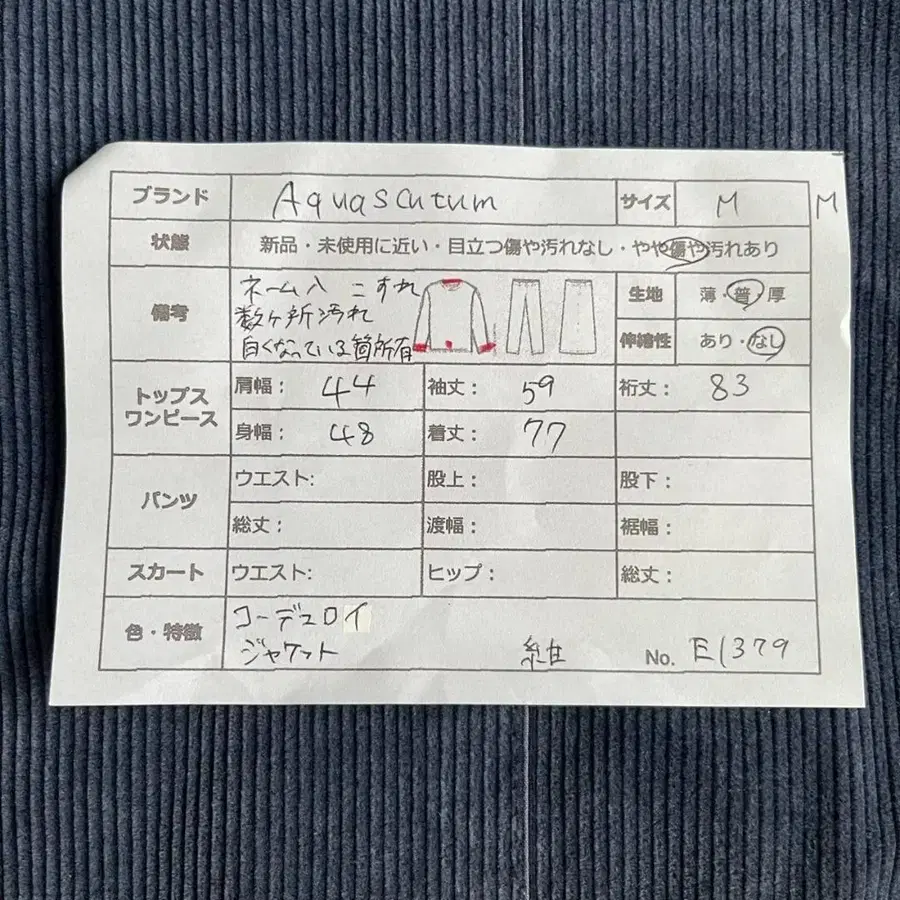 ブランド Aquascutum サイズ M M
状態 新品・未使用に近い・目立つ傷や汚れなし・やや傷や汚れあり
備考 ネーム入 こすれ
数ヶ所汚れ
白くなっている箇所有
生地 薄・普・厚
伸縮性 あり・なし
トップス
ワンピース
肩幅: 44 袖丈: 59 裄丈: 83
身幅: 48 着丈: 77
パンツ
ウエスト: 股上: 股下:
総丈: 渡幅: 裾幅:
スカート ウエスト: ヒップ: 総丈:
色・特徴 コーデュロイ
ジャケット 紺 No. E1379